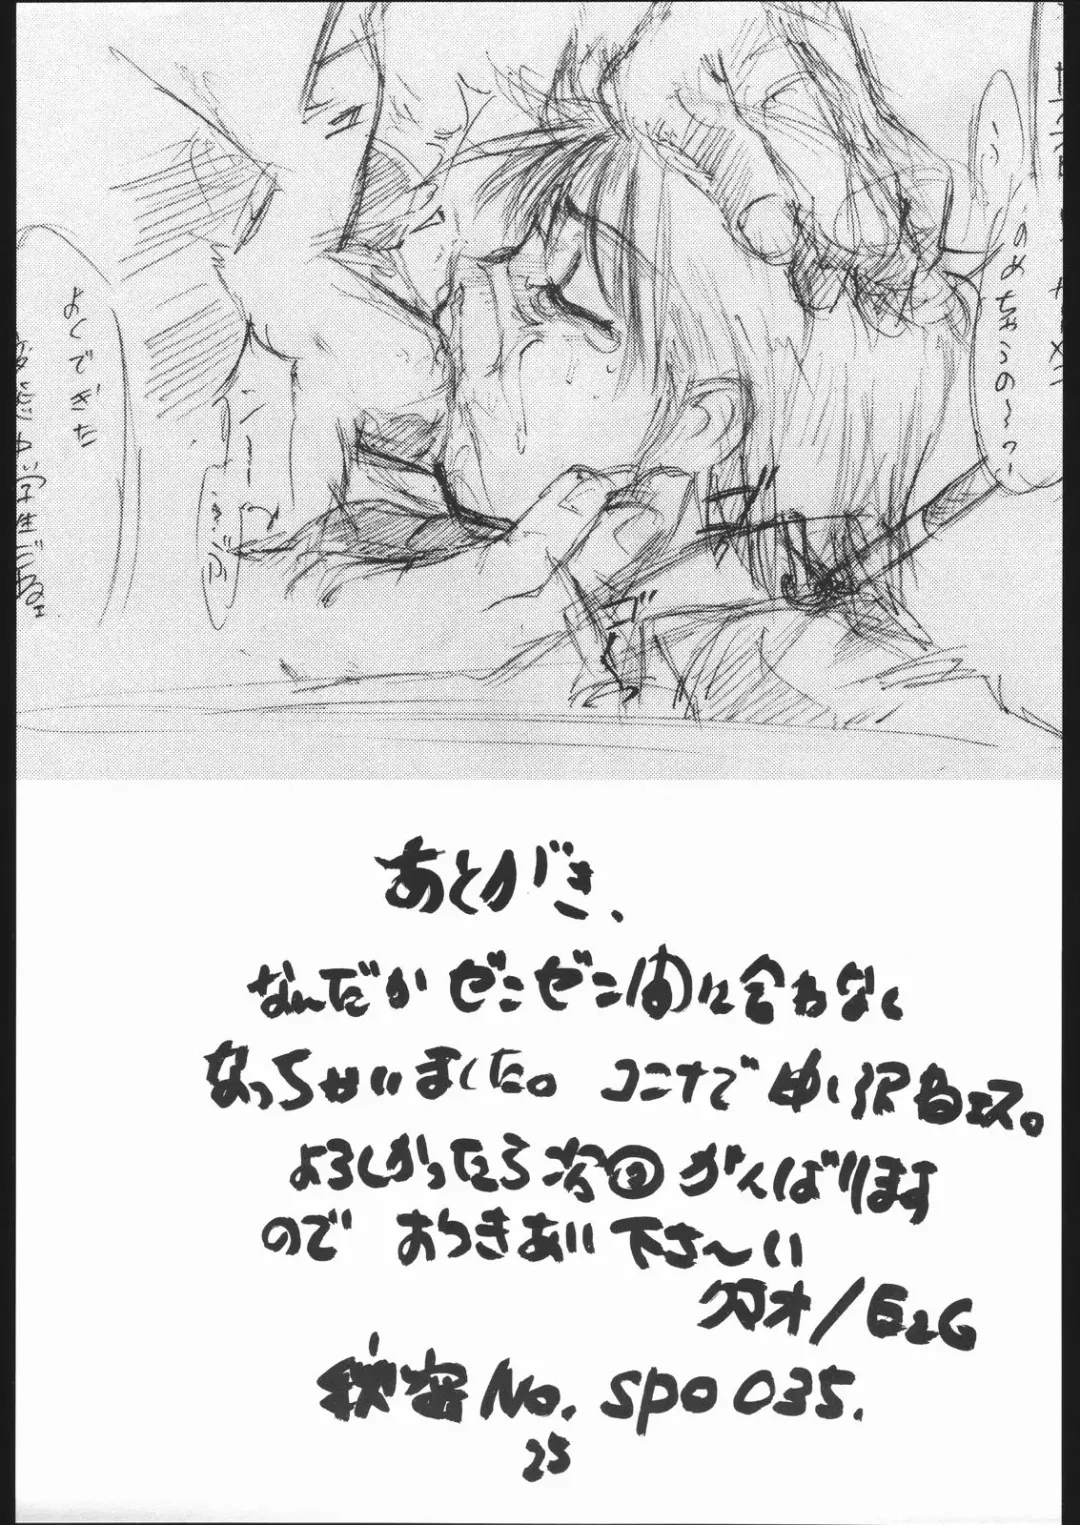 のめちゃいの〜っ
よくできた
ゴ
ゴく
あとがき、
なんだかゼンゼン間に合わなく
なっちゃいました。コンナで申し訳
よろしかったら次回がんばります
ので おつきあい下さ〜い
クマオ/E2G
秘密No. spo 035.
25